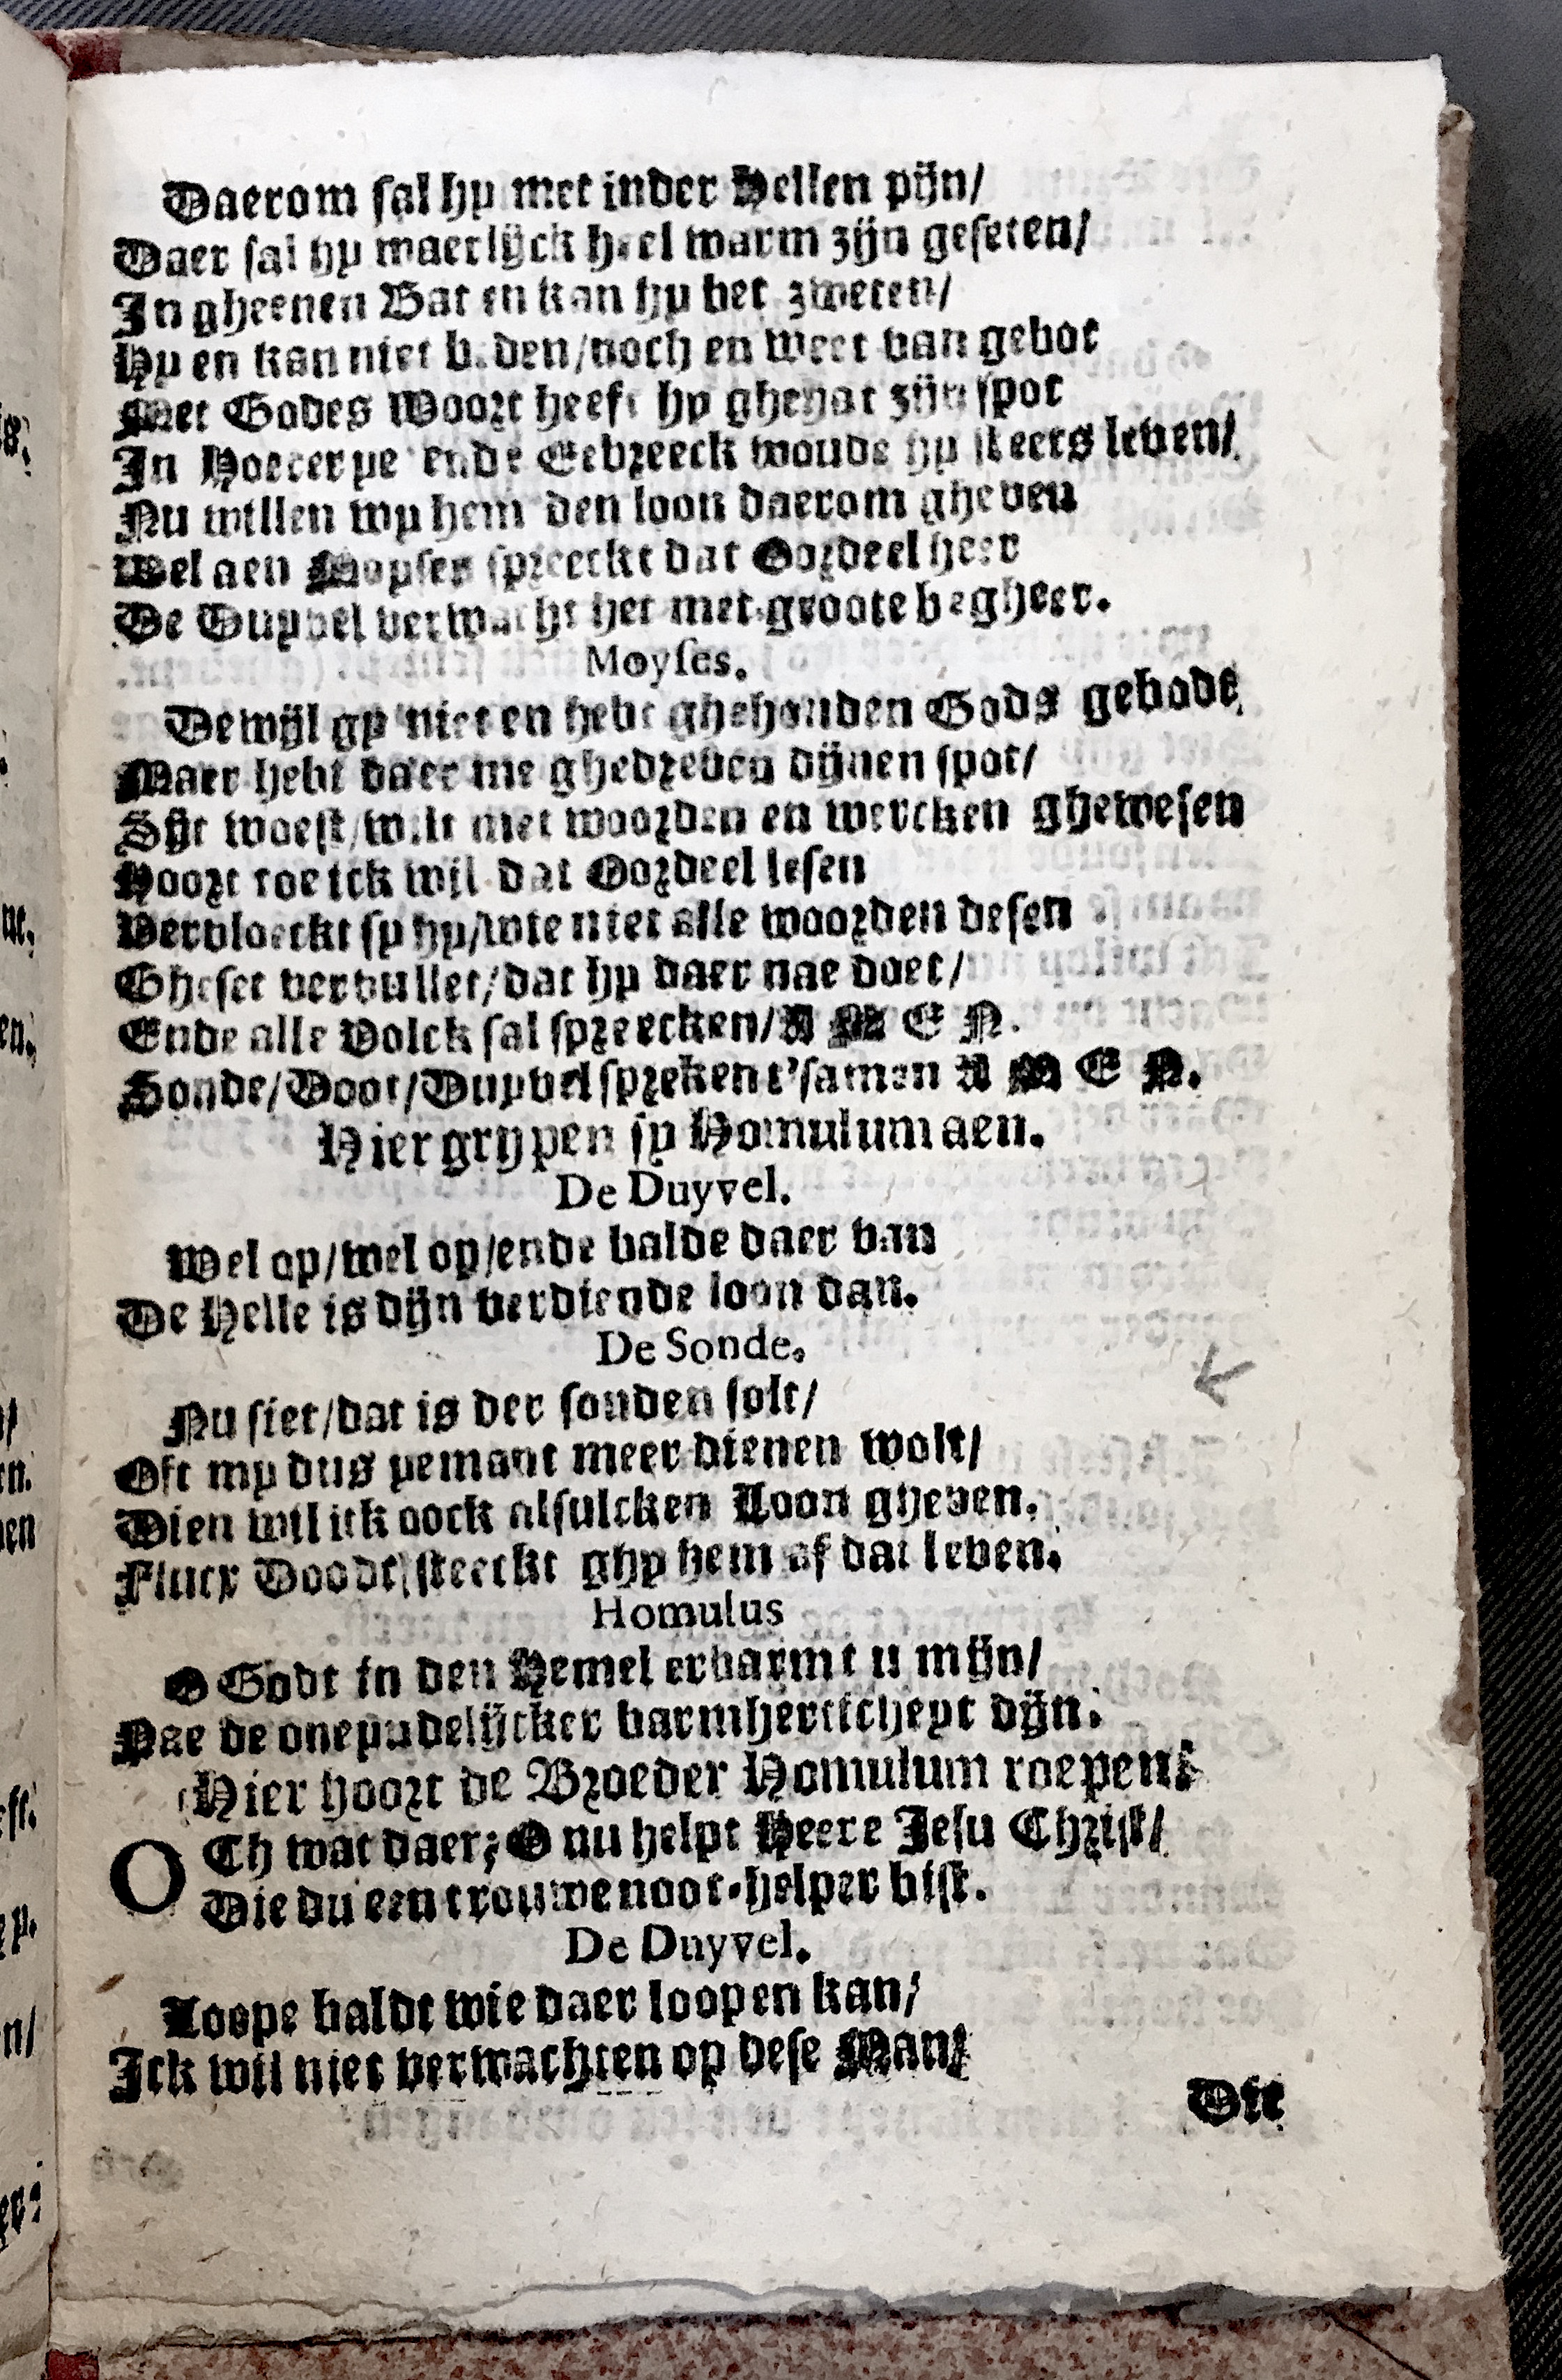 Daerom sal hy met inder Hellen pijn/
Daer sal hy waerlijck heel warm zijn geseten/
In gheenen Bat en kan hy bet zweten/
Hy en kan niet b.den/noch en weet van gebot
Met Godes Woort heeft hy ghehat zijn spot
In Hoererye ende Eebreeck woude hy steets leven/
Nu willen wy hem den loon daerom gheven
Wel aen Moyses spreeckt dat Oordeel heer
De Duyvel verwacht het met groote begheer.
Moyses.
Dewijl gy niet en hebt ghehouden Gods gebode,
Maer hebt daer me ghedreven dijnen spot/
Zijt woest/wilt met woorden en wercken ghewesen
Hoort toe ick wil dat Oordeel lesen
Vervloeckt sy hy/wie niet alle woorden desen
Gheset vervullet/dat hy daer nae doet/
Ende alle Volck sal spreecken/A M E N.
Sonde/Doot/Duyvel spreken t'samen A M E N.
Hier grypen sy Homulum aen.
De Duyvel.
Wel op/wel op/ende balde daer van
De Helle is dijn verdiende loon dan.
De Sonde.
Nu siet/dat is der sonden solt/
Oft my dus yemant meer dienen wolt/
Dien wil ick oock alsulcken Loon gheven.
Flucx Doodt/steeckt ghy hem af dat leven.
Homulus
O Godt in den Hemel erbarmt u mijn/
Nae de oneyndelijcker barmherticheyt dijn.
Hier hoort de Broeder Homulum roepen:
OCh wat daer; O nu helpt Heere Jesu Christ/
Die du een trouwe noot-helper bist.
De Duyvel.
Loope baldt wie daer loopen kan/
Ick wil niet verwachten op dese Man/
Dit